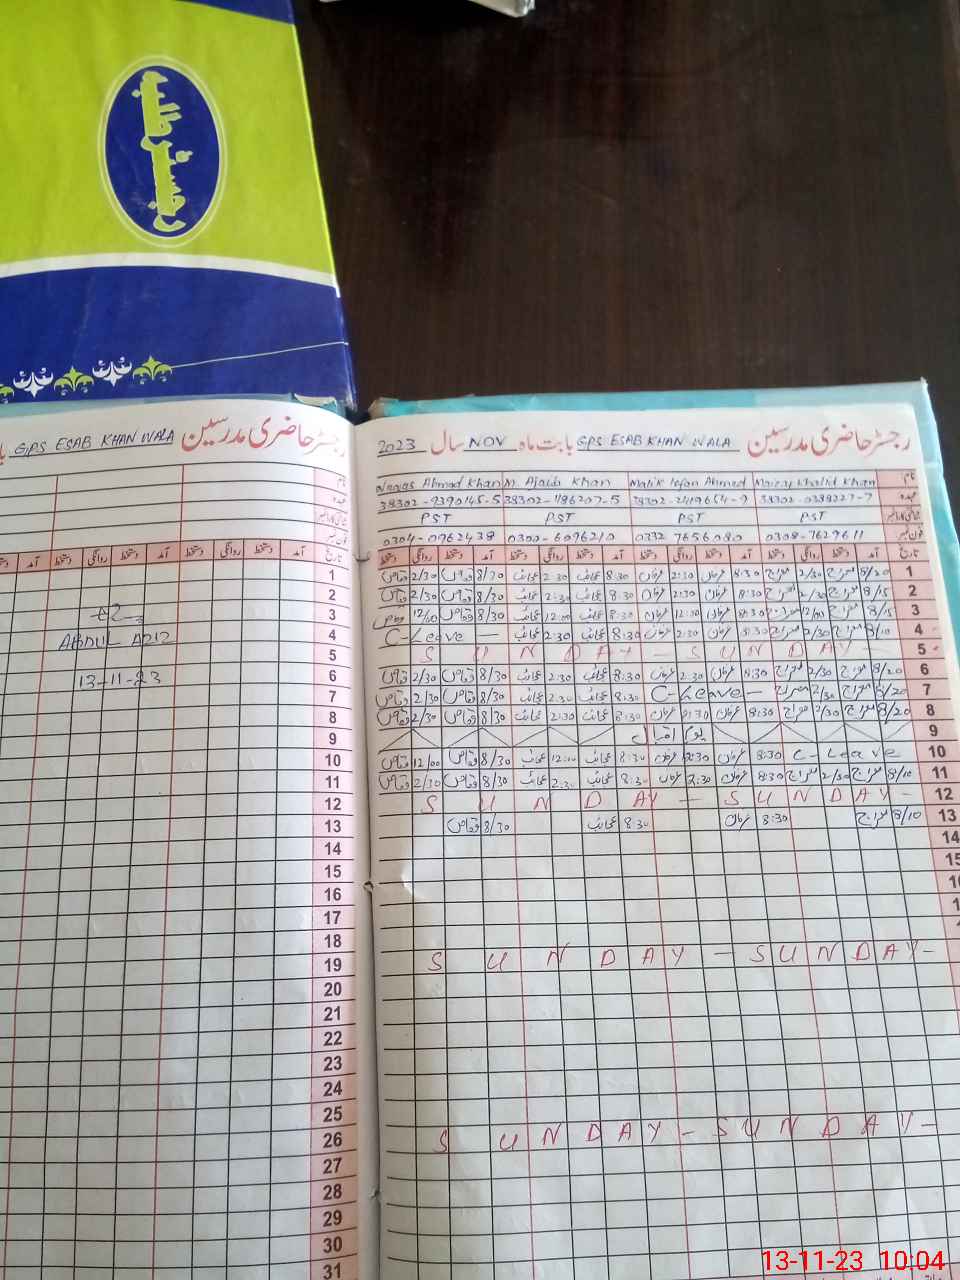 رجسٹر طلبہ
GPS ESAB KHAN WALA رجسٹر حاضری مدرسین
نام
عہدہ
شناختی کارڈ نمبر
فون نمبر
دستخط روانگی دستخط آمد دستخط روانگی دستخط آمد تاریخ
1
2
3
ABDUL AZIZ 4
5
13-11-23 6
7
8
9
10
11
12
13
14
15
16
17
18
19
20
21
22
23
24
25
26
27
28
29
30
31
رجسٹر حاضری مدرسین GPS ESAB KHAN WALA بابت ماہ NOV سال 2023
نام Ahmad Khan M. Ajaib Khan Malik Irfan Ahmed Mairaj Khalid Khan
عہدہ 38302-9390145-5 38302-1186207-5 38302-2419654-9 38302-0388227-7
شناختی کارڈ نمبر PST PST PST PST
فون نمبر 0304-0962438 0303-6096210 0332 7656080 0308-7629611
تاریخ آمد دستخط روانگی دستخط آمد دستخط روانگی دستخط آمد دستخط روانگی دستخط آمد دستخط روانگی دستخط
1 8/20 معراج 2/30 معراج 8:30 عرفان 2:30 عرفان 8:30 عجائب 2:30 عجائب 8/30 وقاص 2/30 وقاص
2 8/15 معراج 2/30 معراج 8:30 عرفان 2:30 عرفان 8:30 عجائب 2:30 عجائب 8/30 وقاص 2/30 وقاص
3 8/15 معراج 12/00 معراج 8:30 عرفان 12:00 عرفان 8:30 عجائب 12:00 عجائب 8/30 وقاص 12/00 وقاص
4 8/10 معراج 2/30 معراج 8:30 عرفان 2:30 عرفان 8:30 عجائب 2:30 عجائب C-Leave —
S U N D A Y — S U N D A Y — 5
6 8/20 معراج 2/30 معراج 8:30 عرفان 2:30 عرفان 8:30 عجائب 2:30 عجائب 8/30 وقاص 2/30 وقاص
7 8/20 معراج 2/30 معراج C-Leave — 8:30 عجائب 2:30 عجائب 8/30 وقاص 2/30 وقاص
8 8/20 معراج 2/30 معراج 8:30 عرفان 2:30 عرفان 8:30 عجائب 2:30 عجائب 8/30 وقاص 2/30 وقاص
9 یوم اقبال
10 C-Leave 8:30 عرفان 2:30 عرفان 8:30 عجائب 12:00 عجائب 8/30 وقاص 12/00 وقاص
11 8/10 معراج 2/30 معراج 8:30 عرفان 2:30 عرفان 8:30 عجائب 2:30 عجائب 8/30 وقاص 2/30 وقاص
S U N D A Y — S U N D A Y — 12
13 8/10 معراج 8:30 عرفان 8:30 عجائب 8/30 وقاص
14
15
S U N D A Y — S U N D A Y —
S U N D A Y — S U N D A Y —
13-11-23 10:04